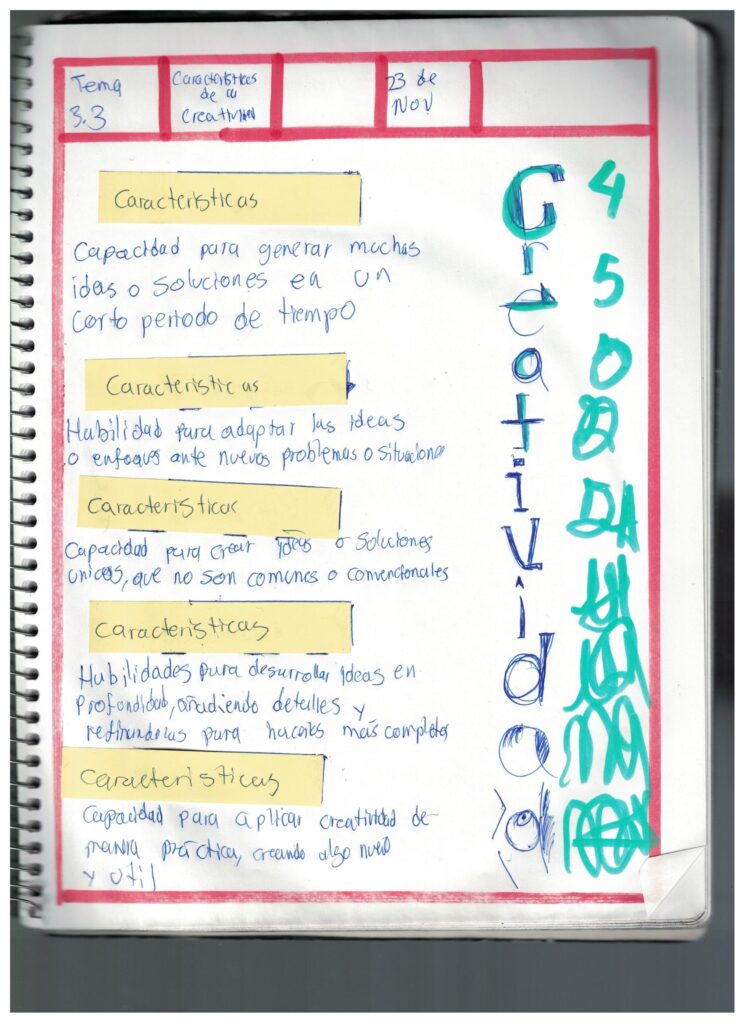 Tema
3.3
Características
de la
Creatividad
23 de
NOV
Caracteristicas
Capacidad para generar muchas
ideas o soluciones en un
corto periodo de tiempo
Caracteristicas
Habilidad para adaptar las ideas
o enfoques ante nuevos problemas o situaciones
Caracteristicas
Capacidad para crear ideas o soluciones
unicas, que no son comunes o convencionales
Caracteristicas
Habilidades para desarrollar ideas en
profundidad, añadiendo detalles y
refinandolas para hacerlas más completas
Caracteristicas
Capacidad para aplicar creatividad de
manera práctica, creando algo nuevo
y util
Creatividad
4
5
0